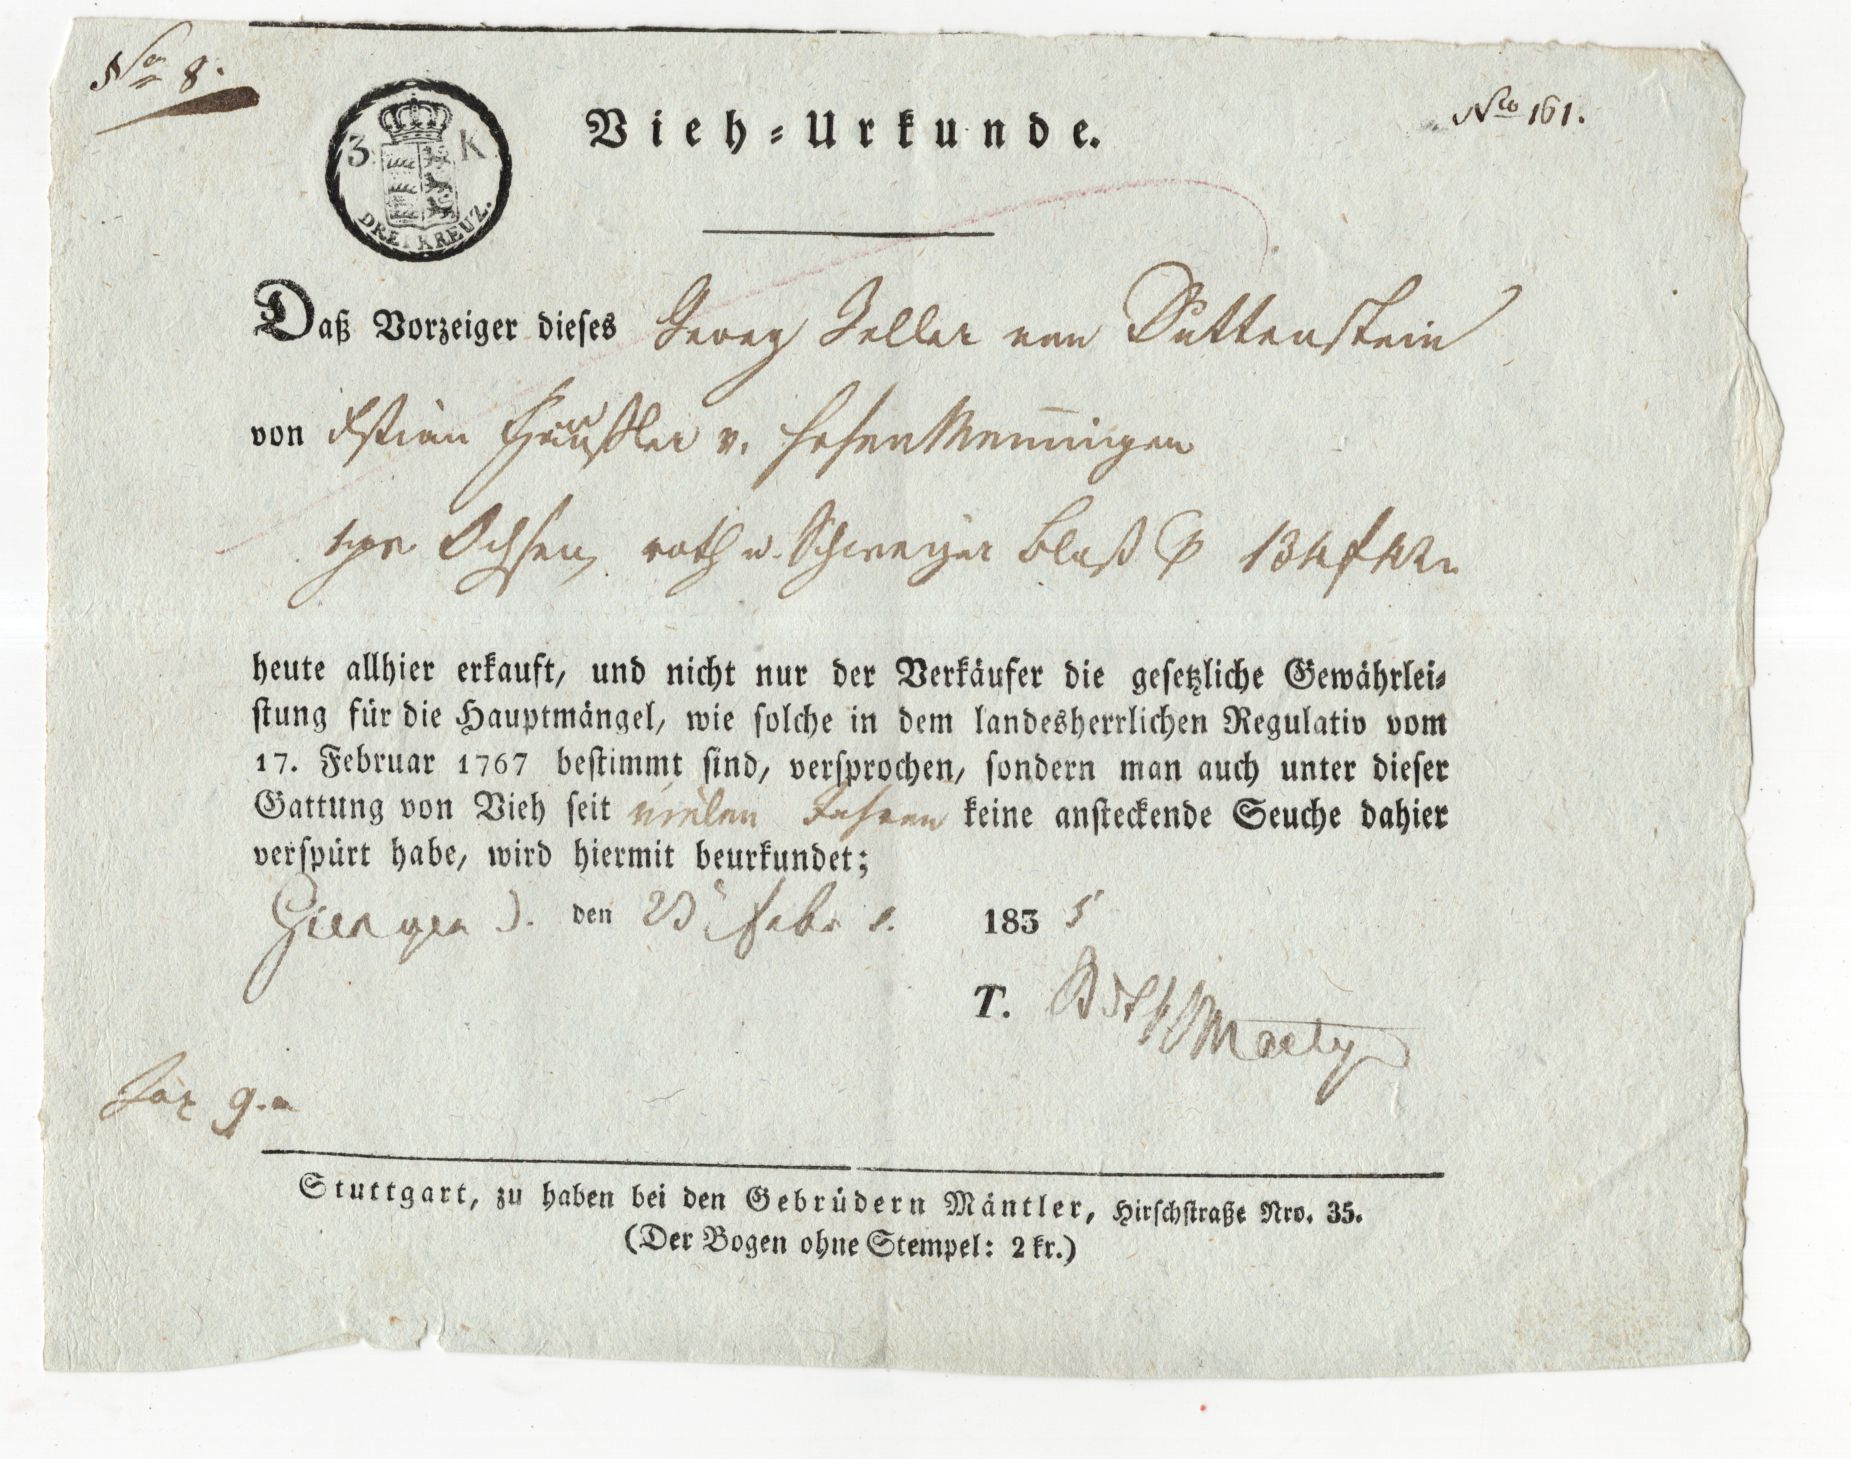 No 8.
3 K
DREI KREUZ.
Vieh-Urkunde.
Nro 161.
Daß Vorzeiger dieses Georg Zeller von Duttenstein
von Häußler v. Hohen Memmingen
Ochsen, roth u. Blaß
heute allhier erkauft, und nicht nur der Verkäufer die gesetzliche Gewährlei-
stung für die Hauptmängel, wie solche in dem landesherrlichen Regulativ vom
17. Februar 1767 bestimmt sind, versprochen, sondern man auch unter dieser
Gattung von Vieh seit vielen Jahren keine ansteckende Seuche dahier
verspürt habe, wird hiermit beurkundet;
Giengen den Febr. 1835
T.
Tax 9.
Stuttgart, zu haben bei den Gebrüdern Mäntler, Hirschstraße Nro. 35.
(Der Bogen ohne Stempel: 2 kr.)